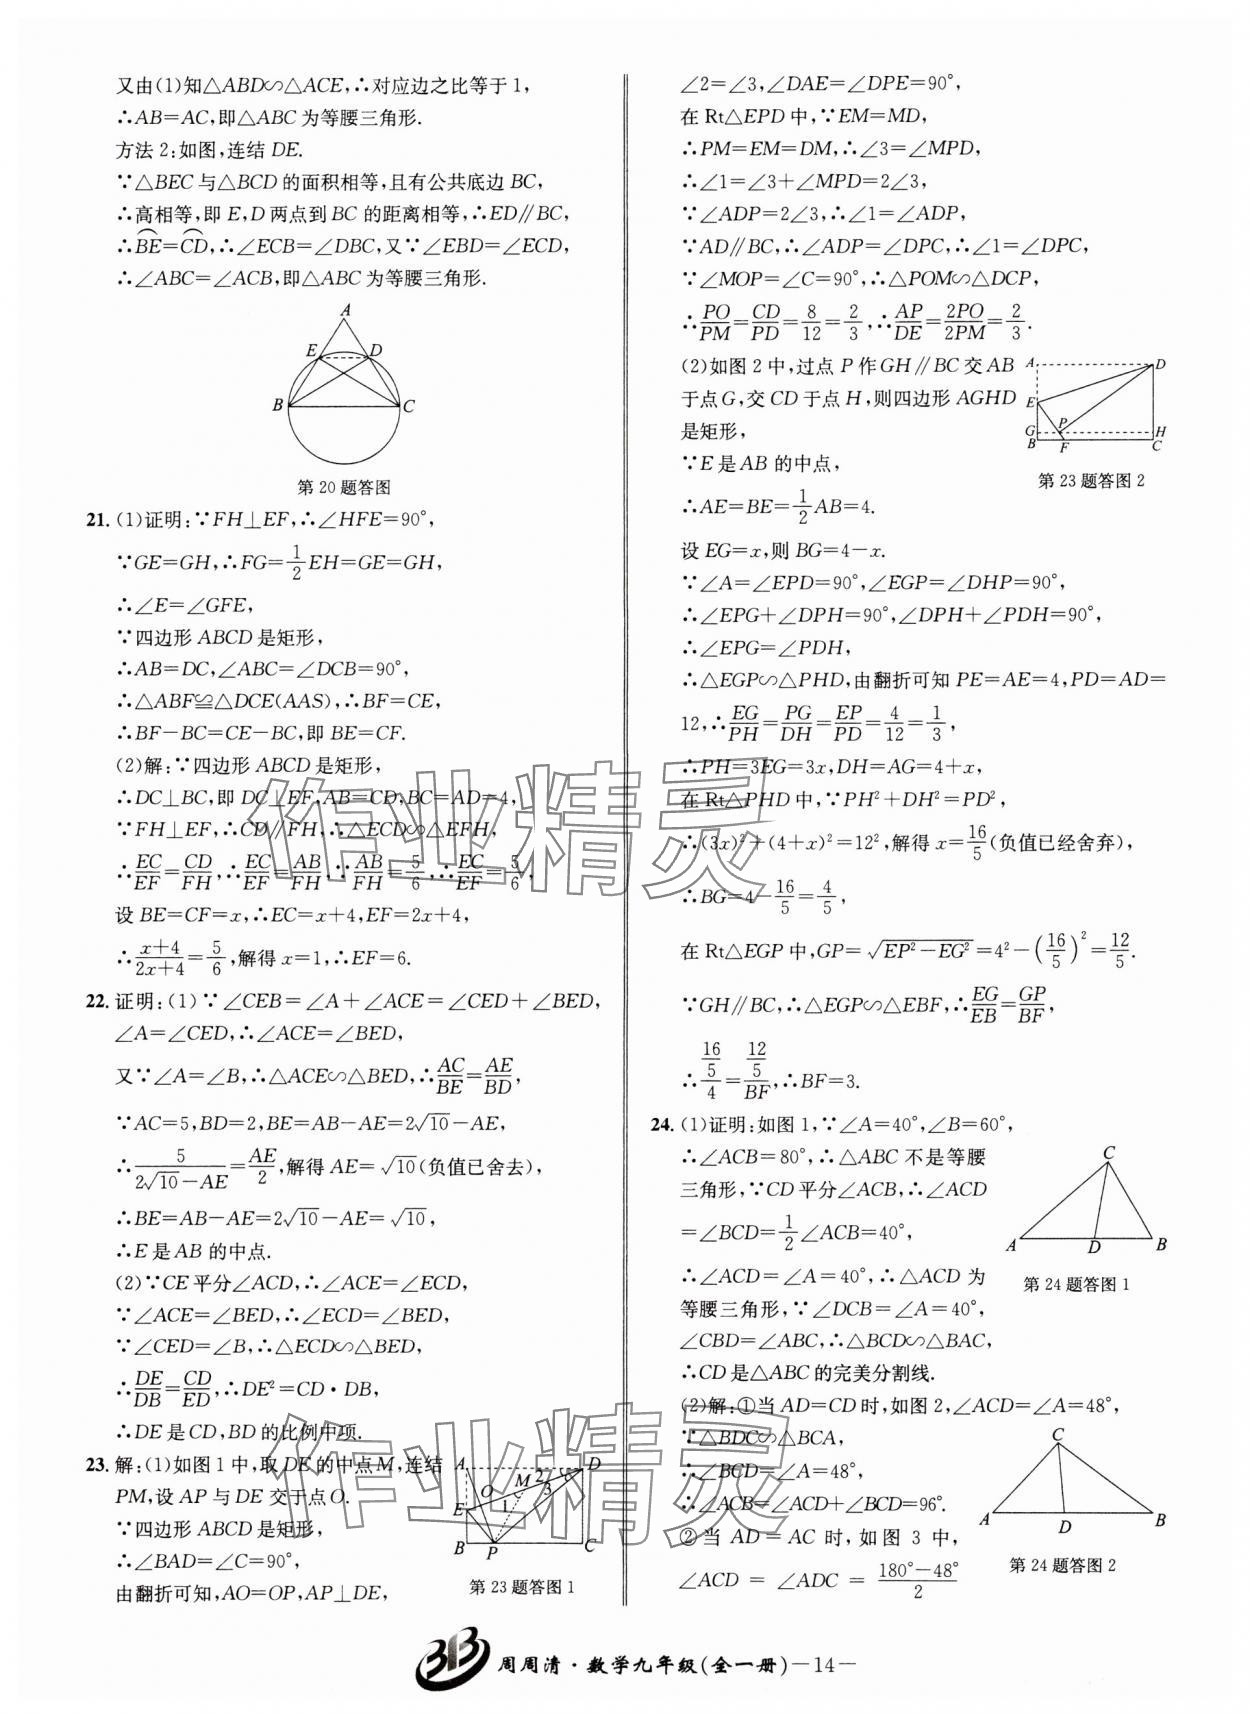 又由(1)知△ABD∽△ACE,∴对应边之比等于1,
∴AB=AC,即△ABC为等腰三角形.
方法2:如图,连结DE.
∵△BEC与△BCD的面积相等,且有公共底边BC,
∴高相等,即E,D两点到BC的距离相等,∴ED∥BC,
∴BE⌢=CD⌢,∴∠ECB=∠DBC,又∵∠EBD=∠ECD,
∴∠ABC=∠ACB,即△ABC为等腰三角形.
A
E D
B C
第20题答图
21.(1)证明:∵FH⊥EF,∴∠HFE=90°,
∵GE=GH,∴FG=1/2EH=GE=GH,
∴∠E=∠GFE,
∵四边形ABCD是矩形,
∴AB=DC,∠ABC=∠DCB=90°,
∴△ABF≌△DCE(AAS),∴BF=CE,
∴BF-BC=CE-BC,即BE=CF.
(2)解:∵四边形ABCD是矩形,
∴DC⊥BC,即DC⊥EF,AB=CD,BC=AD=4,
∵FH⊥EF,∴CD∥FH,∴△ECD∽△EFH,
∴EC/EF=CD/FH,∴EC/EF=AB/FH,∵AB/FH=5/6,∴EC/EF=5/6,
设BE=CF=x,∴EC=x+4,EF=2x+4,
∴(x+4)/(2x+4)=5/6,解得x=1,∴EF=6.
22.证明:(1)∵∠CEB=∠A+∠ACE=∠CED+∠BED,
∠A=∠CED,∴∠ACE=∠BED,
又∵∠A=∠B,∴△ACE∽△BED,∴AC/BE=AE/BD,
∵AC=5,BD=2,BE=AB-AE=2√10-AE,
∴5/(2√10-AE)=AE/2,解得AE=√10(负值已舍去),
∴BE=AB-AE=2√10-AE=√10,
∴E是AB的中点.
(2)∵CE平分∠ACD,∴∠ACE=∠ECD,
∵∠ACE=∠BED,∴∠ECD=∠BED,
∵∠CED=∠B,∴△ECD∽△BED,
∴DE/DB=CD/ED,∴DE²=CD·DB,
∴DE是CD,BD的比例中项.
23.解:(1)如图1中,取DE的中点M,连结
PM,设AP与DE交于点O.
∵四边形ABCD是矩形,
∴∠BAD=∠C=90°,
由翻折可知,AO=OP,AP⊥DE,
A D
M 2
O 3
E 1
B P C
第23题答图1
∠2=∠3,∠DAE=∠DPE=90°,
在Rt△EPD中,∵EM=MD,
∴PM=EM=DM,∴∠3=∠MPD,
∴∠1=∠3+∠MPD=2∠3,
∵∠ADP=2∠3,∴∠1=∠ADP,
∵AD∥BC,∴∠ADP=∠DPC,∴∠1=∠DPC,
∵∠MOP=∠C=90°,∴△POM∽△DCP,
∴PO/PM=CD/PD=8/12=2/3,∴AP/DE=2PO/2PM=2/3.
(2)如图2中,过点P作GH∥BC交AB
于点G,交CD于点H,则四边形AGHD
是矩形,
∵E是AB的中点,
∴AE=BE=1/2AB=4.
A D
E
G P H
B F C
第23题答图2
设EG=x,则BG=4-x.
∵∠A=∠EPD=90°,∠EGP=∠DHP=90°,
∴∠EPG+∠DPH=90°,∠DPH+∠PDH=90°,
∴∠EPG=∠PDH,
∴△EGP∽△PHD,由翻折可知PE=AE=4,PD=AD=
12,∴EG/PH=PG/DH=EP/PD=4/12=1/3,
∴PH=3EG=3x,DH=AG=4+x,
在Rt△PHD中,∵PH²+DH²=PD²,
∴(3x)²+(4+x)²=12²,解得x=16/5(负值已经舍弃),
∴BG=4-16/5=4/5,
在Rt△EGP中,GP=√(EP²-EG²)=4²-(16/5)²=12/5.
∵GH∥BC,∴△EGP∽△EBF,∴EG/EB=GP/BF,
∴(16/5)/4=(12/5)/BF,∴BF=3.
24.(1)证明:如图1,∵∠A=40°,∠B=60°,
∴∠ACB=80°,∴△ABC不是等腰
三角形,∵CD平分∠ACB,∴∠ACD
=∠BCD=1/2∠ACB=40°,
∴∠ACD=∠A=40°,∴△ACD为
等腰三角形,∵∠DCB=∠A=40°,
∠CBD=∠ABC,∴△BCD∽△BAC,
∴CD是△ABC的完美分割线.
C
A D B
第24题答图1
(2)解:①当AD=CD时,如图2,∠ACD=∠A=48°,
∵△BDC∽△BCA,
∴∠BCD=∠A=48°,
∴∠ACB=∠ACD+∠BCD=96°.
②当AD=AC时,如图3中,
∠ACD=∠ADC=(180°-48°)/2
C
A D B
第24题答图2
作业精灵
作业精灵
周周清·数学九年级(全一册)—14—